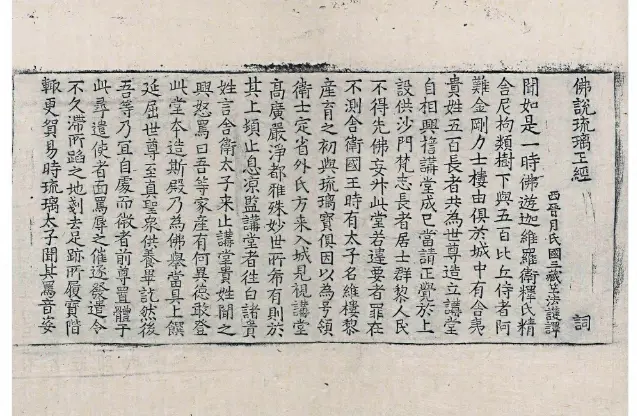 佛說琉璃王經　詞
西晉月氏國三藏竺法護譯
聞如是一時佛遊迦維羅衛釋氏精
舍尼拘類樹下與五百比丘侍者阿
難金剛力士樓由俱於城中有舍夷
貴姓五百長者共為世尊造立講堂
自相興撘講堂成已當請正覺於上
設供沙門梵志長者居士群黎人民
不得先佛妄升此堂若違要者罪在
不測舍衛國王時有太子名維樓黎
產育之初與琉璃寶俱因以為号領
衛士定省外氏方來入城見視講堂
高廣嚴淨都雅殊妙世所希有則於
其上頓止息涼監講堂者往白諸貴
姓言舍衛太子來止講堂貴姓聞之
興怒罵曰吾等家產有何異德敢登
此堂夲造斯殿乃為佛興當具上饌
延屈世尊至真聖衆供養畢訖然後
吾等乃宜自處而微者前尊置體于
此尋遣使者面罵辱之催逐發遣令
不久滯所蹈之地剗去足跡所履寶階
輙更貿易時琉璃太子聞其罵音姿